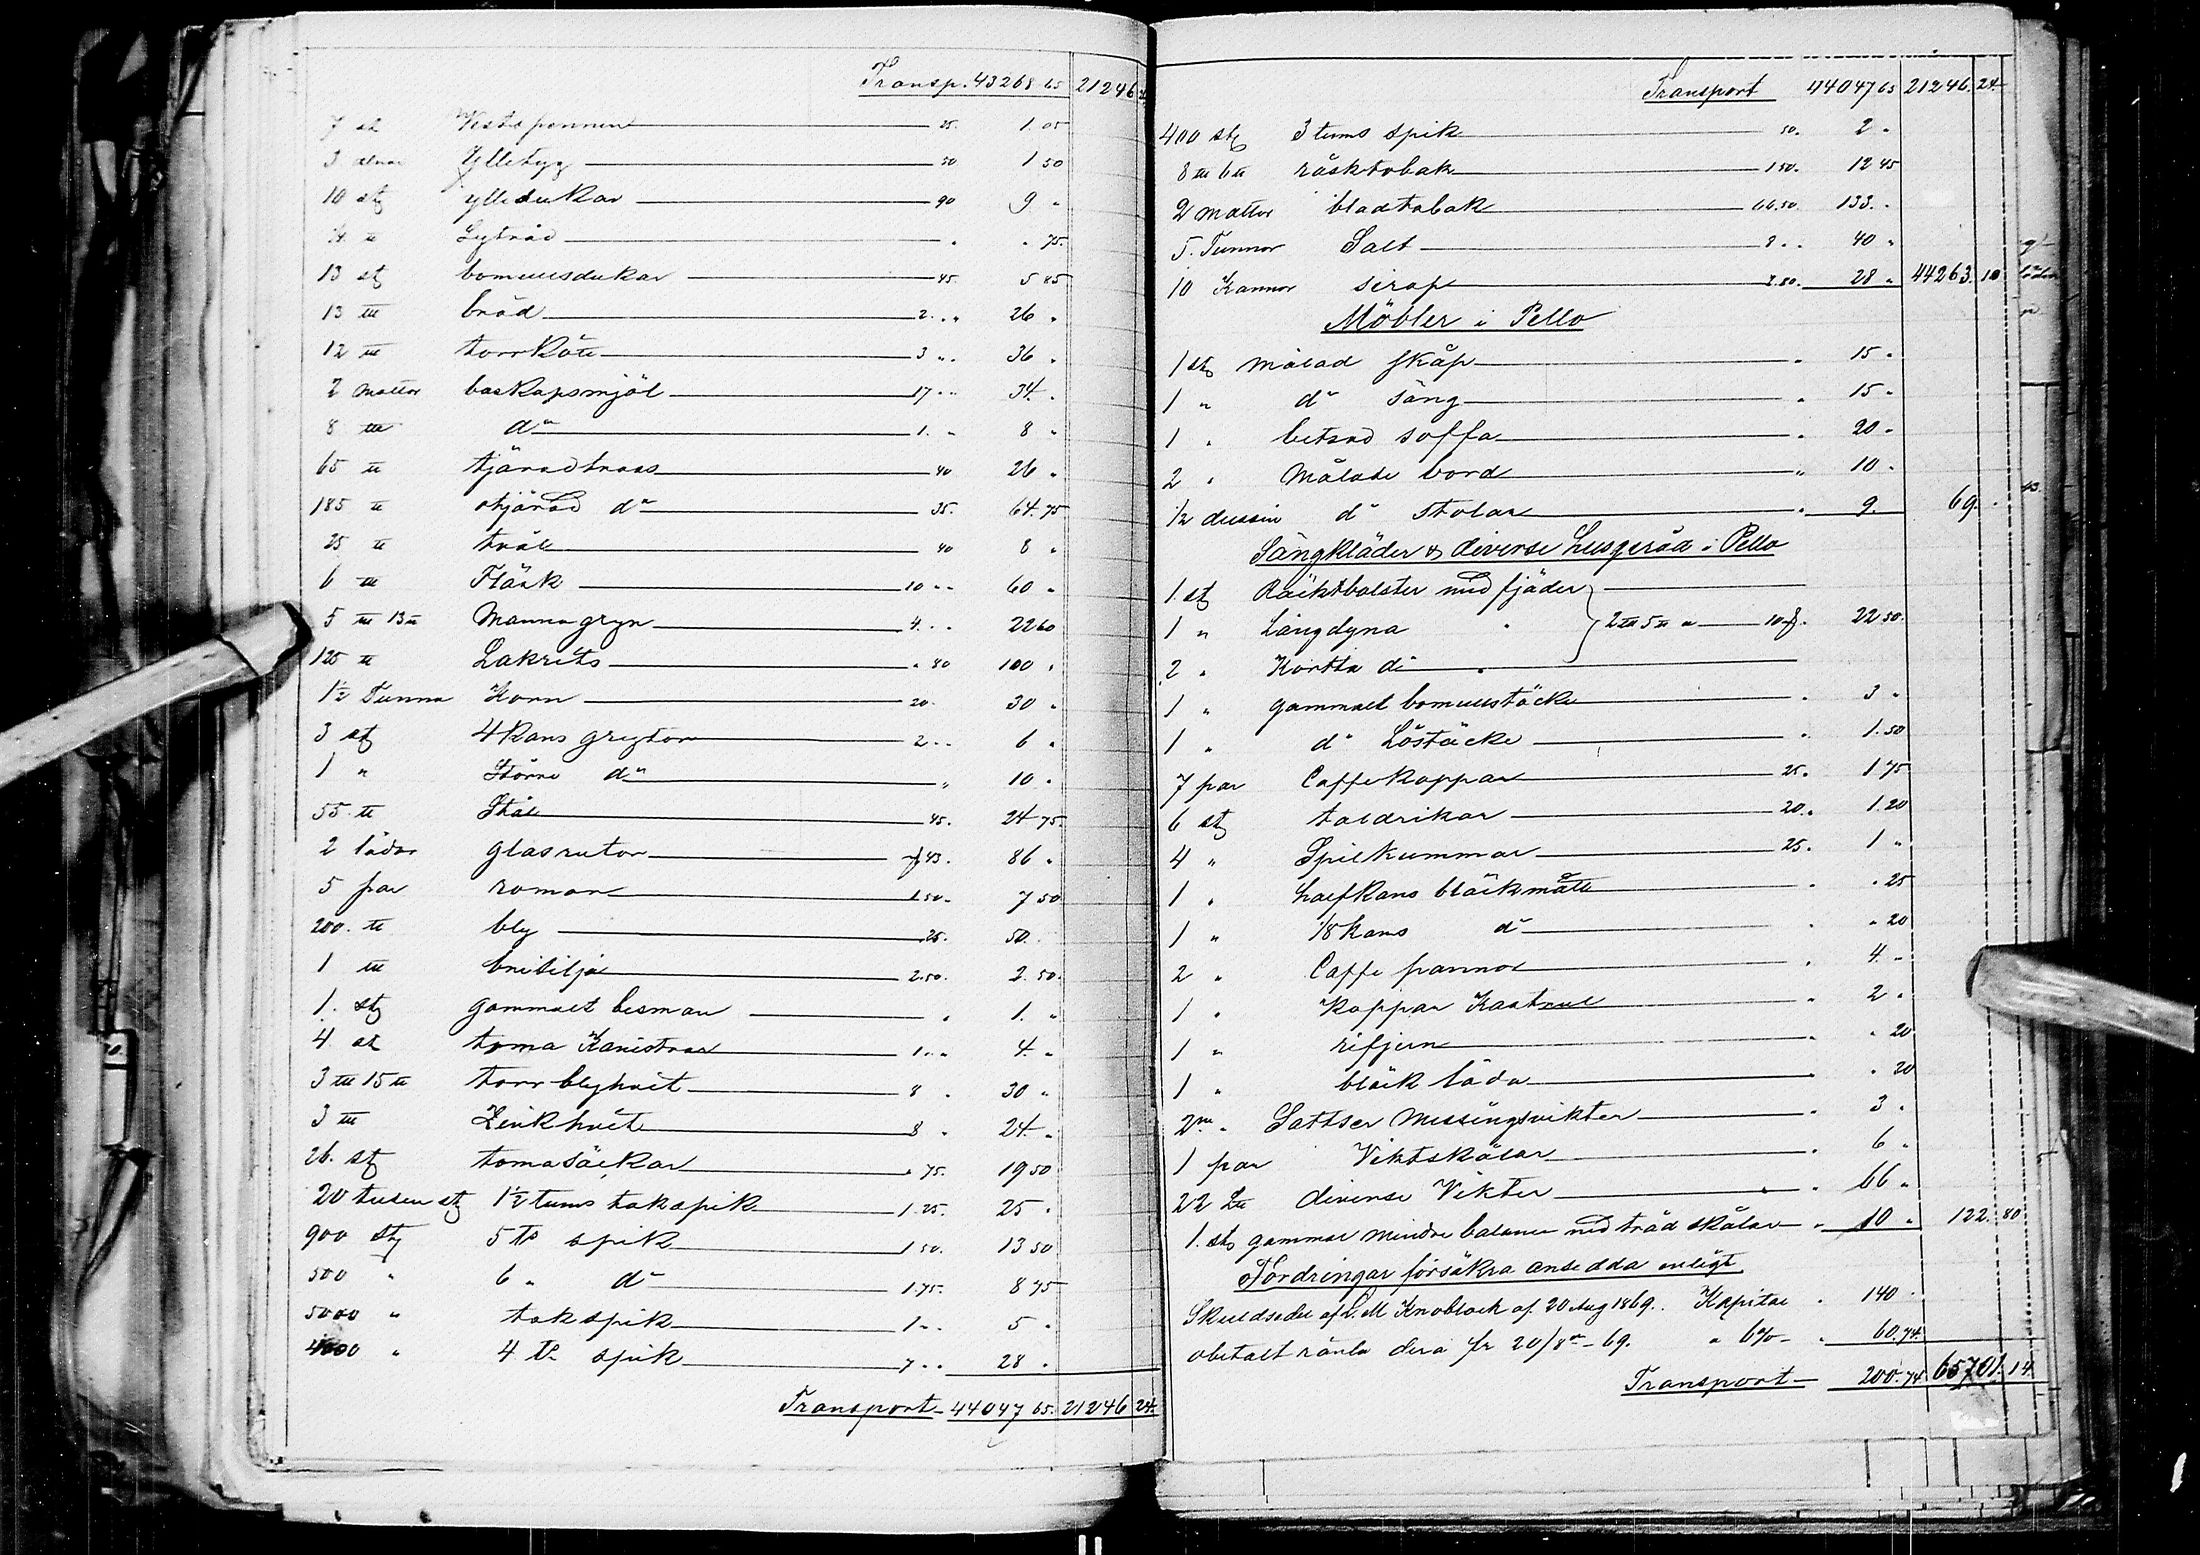 Transp. 43268 65 21246 24
7 st Vestspennen 25. 1.05
3 alnar Ylletyg 50 1 50
10 st ylledukar 90 9 "
Lytråd " " 75.
13 st bomullsdukar 45. 5 85
13 lll bröd 2 . " 26 "
12 lll torrkött 3 " . 36 "
2 mattor baskapsmjöl 17 " . 34 .
8 lll d:o 1. " 8 "
65 ll tjäradtross 40 26 "
185 ll otjärad d:o 35. 64.75
25 ll tvål 40 8 "
6 lll Fläsk 10 " " 60 "
5 lll 13 ll Mannagryn 4. . . 22 60
125 ll Lakrits " 80 100 "
1½ Tunna Korn 20. 30 "
3 st 4 kans grytor 2 . . 6 "
1 " Större d:o " 10 .
55 ll Stål 45. 24 75.
2 lådor glasrutor f 43. 86 "
5 par roman 1.50. 7 50
200. ll bly .25. 50.
1 lll brisilja 2.50. 2.50.
1. st gammalt besman " 1. "
4 st toma Kanistrar 1 . " 4. "
3 lll 15 ll torr blyhvit 8 . 30 "
3 lll Zinkhvit 8 . 24. "
26. st toma säckar " 75. 19 50
20 tusen st 1½ tums takspik 1.25. 25 .
900 st 5 t:s spik 1 50. 13 50
500 " 6 " d:o 1.75. 8 75
5000 " takspik 1 . . 5 "
4000 " 4 t:s spik 7 . . 28 .
Transport 44047 65. 21246 24.
Transport 44047 65 21246. 24.
400 st 3 tums spik 50. 2 "
8 lll 6 ll råsktobak 1 50. 12 45
2 mattor bladtobak 66.50. 133. "
5. Tunnor Salt 8 . . 40 "
10 Kannor sirap 2.80. 28 " 44263. 10
Möbler i Pello
1 st målad skåp " 15 "
1 " d:o säng " 15 "
1 " betsad soffa " 20 "
2 " Målade bord " 10 "
½ dussin d:o stolar " 9. 69. .
Sängkläder & diverse husgeråd i Pello
1. st Räcktbolster med fjäder
1 " Långdyna " 2 lll 5 ll a 10 f. 22 50.
2 " Kortta d:o "
1 " gammalt bomullstäcke " 3 "
1 " d:o Löstäcke " 1.50
7 par Caffekoppar 25. 1.75
6 st taldrikar 20. 1.20
4 " Spilkummar 25. 1 "
1 " halfkans bläckmått " " 25
1 " 1/8 kans d:o " " 20
2 " Caffe pannor " 4. "
1 " koppar Kastrul " 2 "
1 " rifjern " " 20
1 " bläck låda " " 20
2:ne " Sattser Messingsvikter " 3 "
1 par Viktskålar " 6 "
22 Lll diverse Vikter " 66 "
1. st gammal mindre balans med träd skålar " 10 " 122. 80
Fordringar försäkra ansedda enligt
Skuldsedel af L. M Knoblock af 20 Aug 1869. Kapital " 140 "
obetalt ränta dera fr 20/8 - 69. a 6% " 60.74.
Transport 200.74 65701. 14